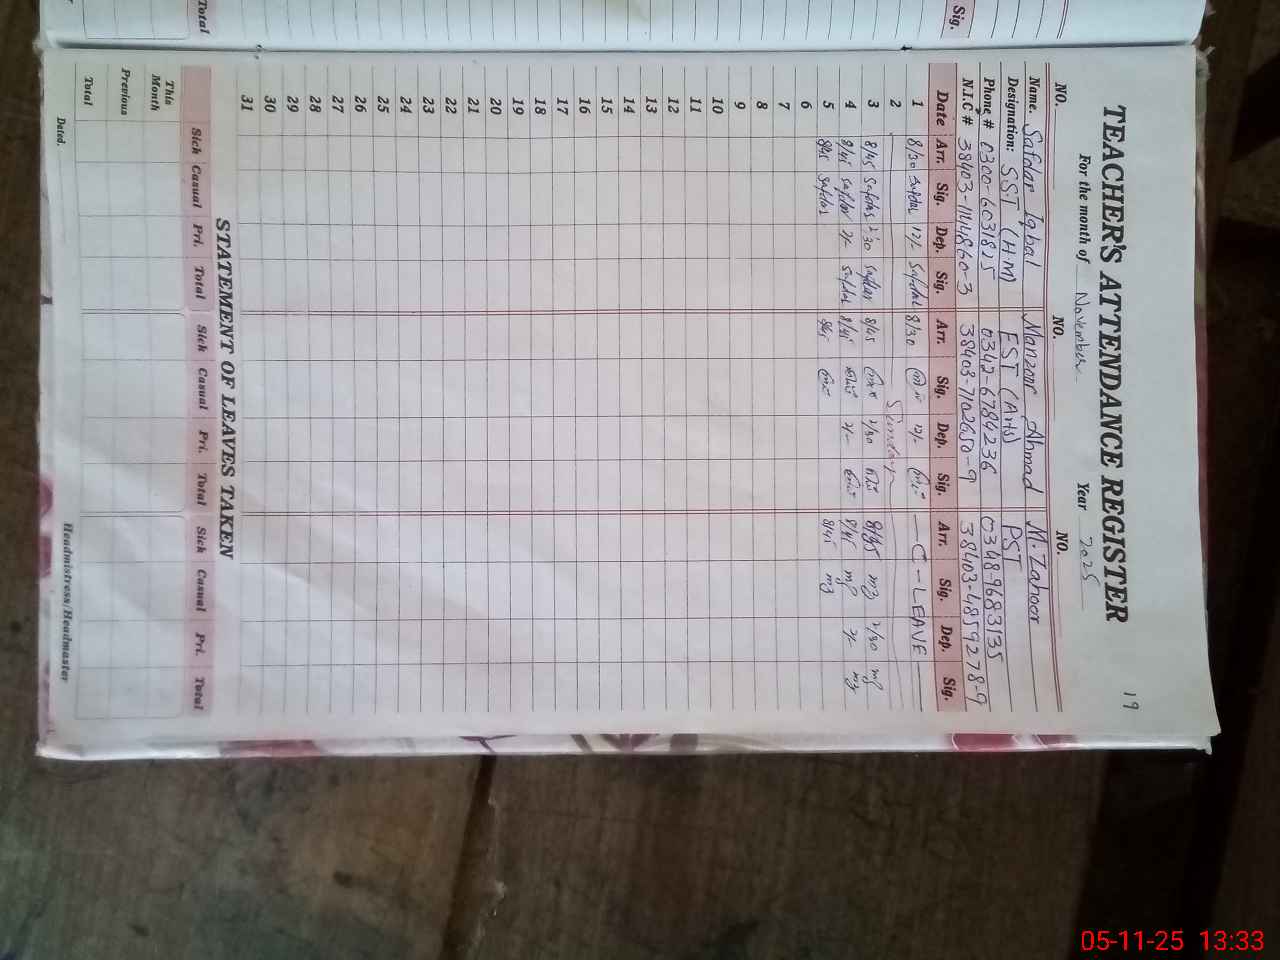 19
TEACHER'S ATTENDANCE REGISTER
For the month of November Year 2025
NO. NO. NO.
Name. Safdar Iqbal Manzoor Ahmad M. Zahoor
Designation: SST (H.M) EST (Arts) PST
Phone # 0300-6031825 0342-6784236 0348-9683135
N.I.C # 38403-1114860-3 38403-7102650-9 38403-4859278-9
Date Arr. Sig. Dep. Sig. Arr. Sig. Dep. Sig. Arr. Sig. Dep. Sig.
1 8/30 Safdar 12/- Safdar 8/30 12/- C-LEAVE
2 Sunday
3 8/45 Safdar 2/30 Safdar 8/45 2/30 8/45 mz 2/30 mz
4 8/45 Safdar 2/- Safdar 8/45 2/- 8/45 mz 2/- mz
5 8/45 Safdar 8/45 8/45 mz
6
7
8
9
10
11
12
13
14
15
16
17
18
19
20
21
22
23
24
25
26
27
28
29
30
31
STATEMENT OF LEAVES TAKEN
Sick Casual Pri. Total Sick Casual Pri. Total Sick Casual Pri. Total
This Month
Previous
Total
Dated. Headmistress/Headmaster
Total
Sig.
05-11-25 13:33